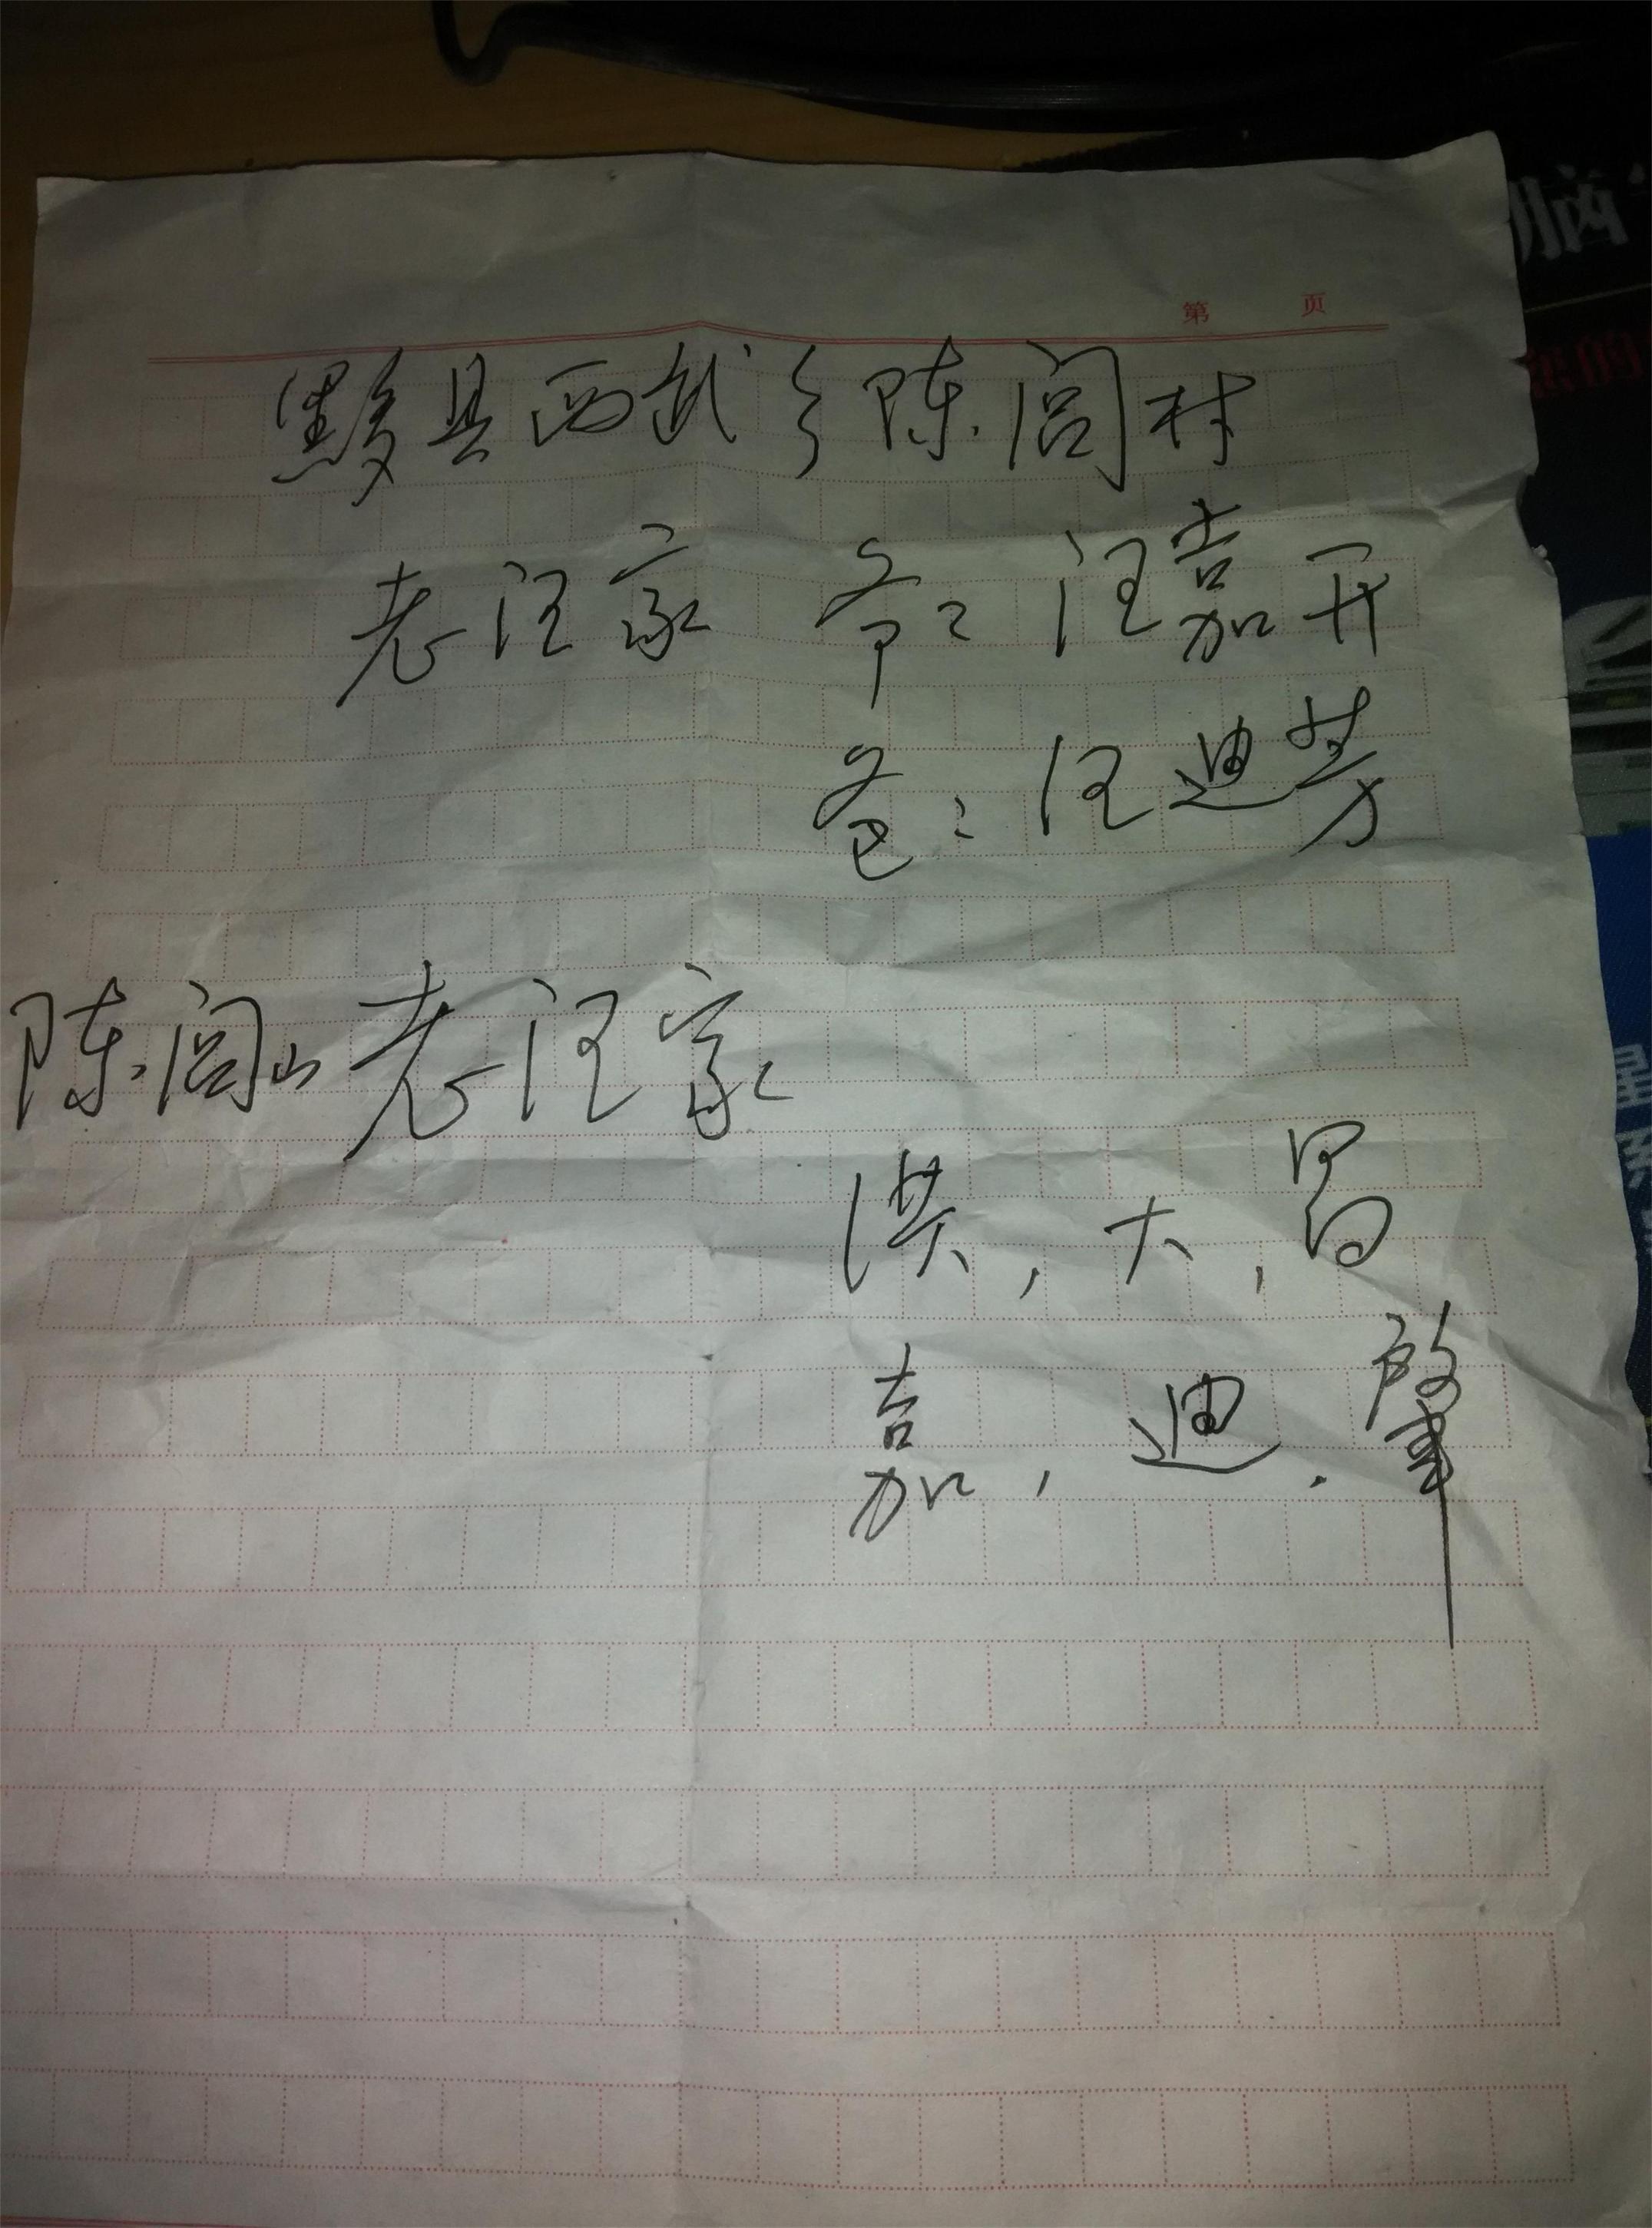 第 页
黟县西武乡陈闾村
老汪家 爷爷 汪嘉开
爸爸 汪迪芳
陈闾山老汪家
洪，大，昌
嘉，迪，肇